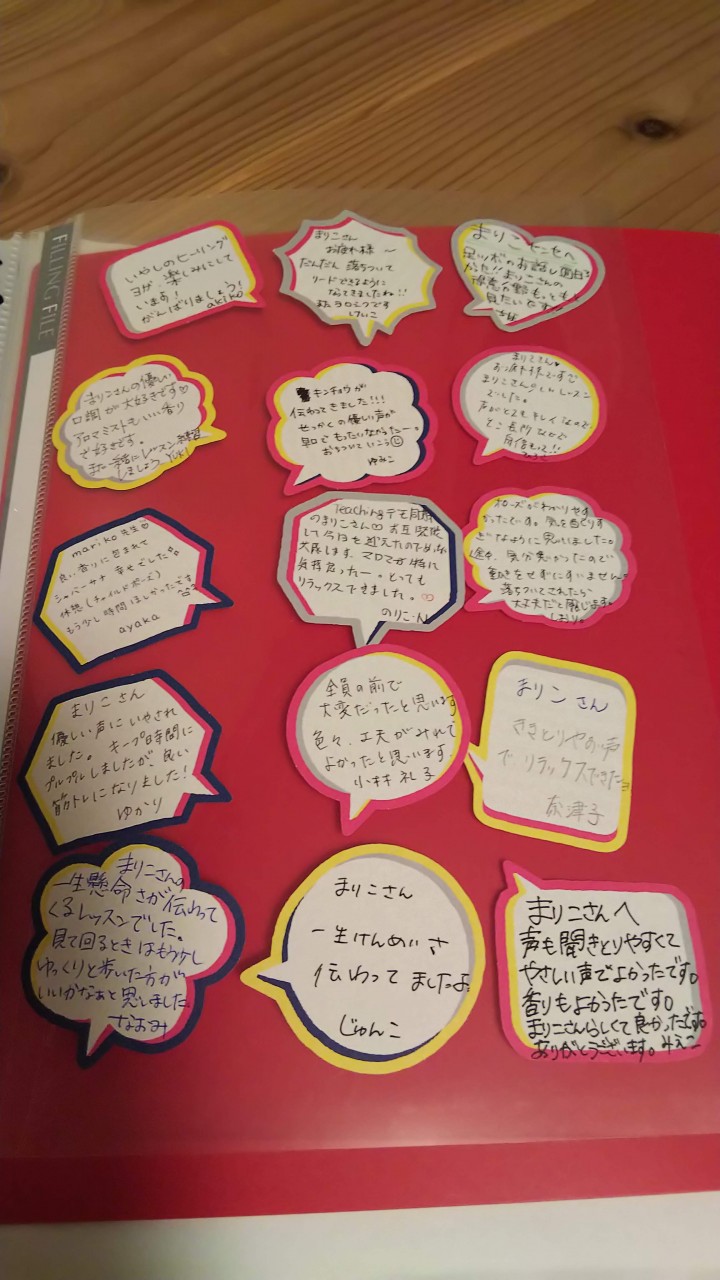 FILING FILE
いやしのヒーリング
ヨガ、楽しみにして
います!
がんばりましょう!
akiko
まりこさん
お疲れ様〜
だんだん 落ちついて
リードできるように
なってきましたね!!
またヨロシクです
けいこ
まりこセンセへ
足ツボのお話し面白
かった!! まりこさんの
得意分野もっとも
見たいなす
まりこさんの優しい
口調が大好きです♡
アロマミストもいい香り
で好きです。
また一緒にレッスン練習
しましょう YUKI
キンチョウが
伝わってきました!!!
せっかくの優しい声が
早口でもったいなかったー。
おちついていこう☺
ゆみこ
まりこさん♥
お疲れ様です
まりこさんのレッスン
でした。
声がとてもキレイなので
そこ長所なので
自信もって!!
mariko先生
良い香りに包まれて
シャバーサナ 幸せでした。
休憩(チャイルドポーズ)
もう少し時間ほしかったです
ayaka
Teachingデモ同期
のまりこさん♡お互い緊張
して今日を迎えたのでめっちゃ
共感します。アロマが特に
気持良ったー。とっても
リラックスできました。♡
のりこ
ポーズがわかりやす
かったです。気を自とりす
ぎなように見ていました。
途中、気分悪かったので
動きをせずにすいません
落ちついてされたら
大丈夫だと感じます。
しおり。
まりこさん
優しい声にいやされ
ました。キープ時間に
プルプルしましたが良い
筋トレになりました!
ゆかり
全員の前で
大変だったと思います
色々、工夫がみれて
よかったと思います
小林 礼子
まりこ さん
ききとりやすい声
で リラックスできた
奈津子
まりこさんの
一生懸命さが伝わって
くるレッスンでした。
見て回るときはもう少し
ゆっくりと歩いた方が
いいかなぁと思いました
なおみ
まりこさん
一生けんめいさ
伝わってましたよ。
じゅんこ
まりこさんへ
声も聞きとりやすくて
やさしい声でよかったです。
香りもよかったです。
まりこさんらしくて良かったです。
ありがとうございます。みえこ